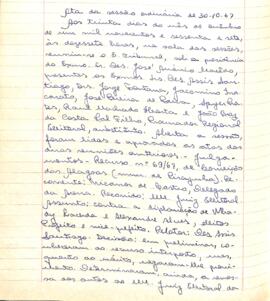 Ata da sessão ordinária de 30.10.67
Aos trinta dias do mês de outubro
de um mil novecentos e sessenta e sete,
às dezesseis horas, na sala das sessões,
reuniu-se o E. Tribunal, sob a presidência
do Exmo. Sr. Des. José
presentes os Exmos. Srs. Des. Assis San-
tiago, Drs. Jorge Fontana, Jacomino Ina-
carato, José Pereira de Paiva,
Dr. Raul Machado Horta e João Bray
da Costa Val Filho, Procurador Regional
Eleitoral, substituto. Aberta a sessão,
foram lidas e aprovadas as atas das
duas reuniões anteriores. - Julga-
mentos. - Recurso nº 69/67, de Conceição
das Alagoas (mun. de Pirajuba). Re-
corrente: de Castro, Delegado
da Arena. Recorrido: MM. Juiz Eleitoral
Assunto: contra a diplomação de
e Alexandre Alves, eleitos
Prefeito e vice-prefeito. Relator: Des. Assis
Santiago. Decisão: Em preliminar, co-
nheceram do recurso interposto, mas,
quanto ao mérito, negaram-lhe provi-
mento. Determinaram, ainda, a remes-
sa dos autos ao MM. Juiz Eleitoral do